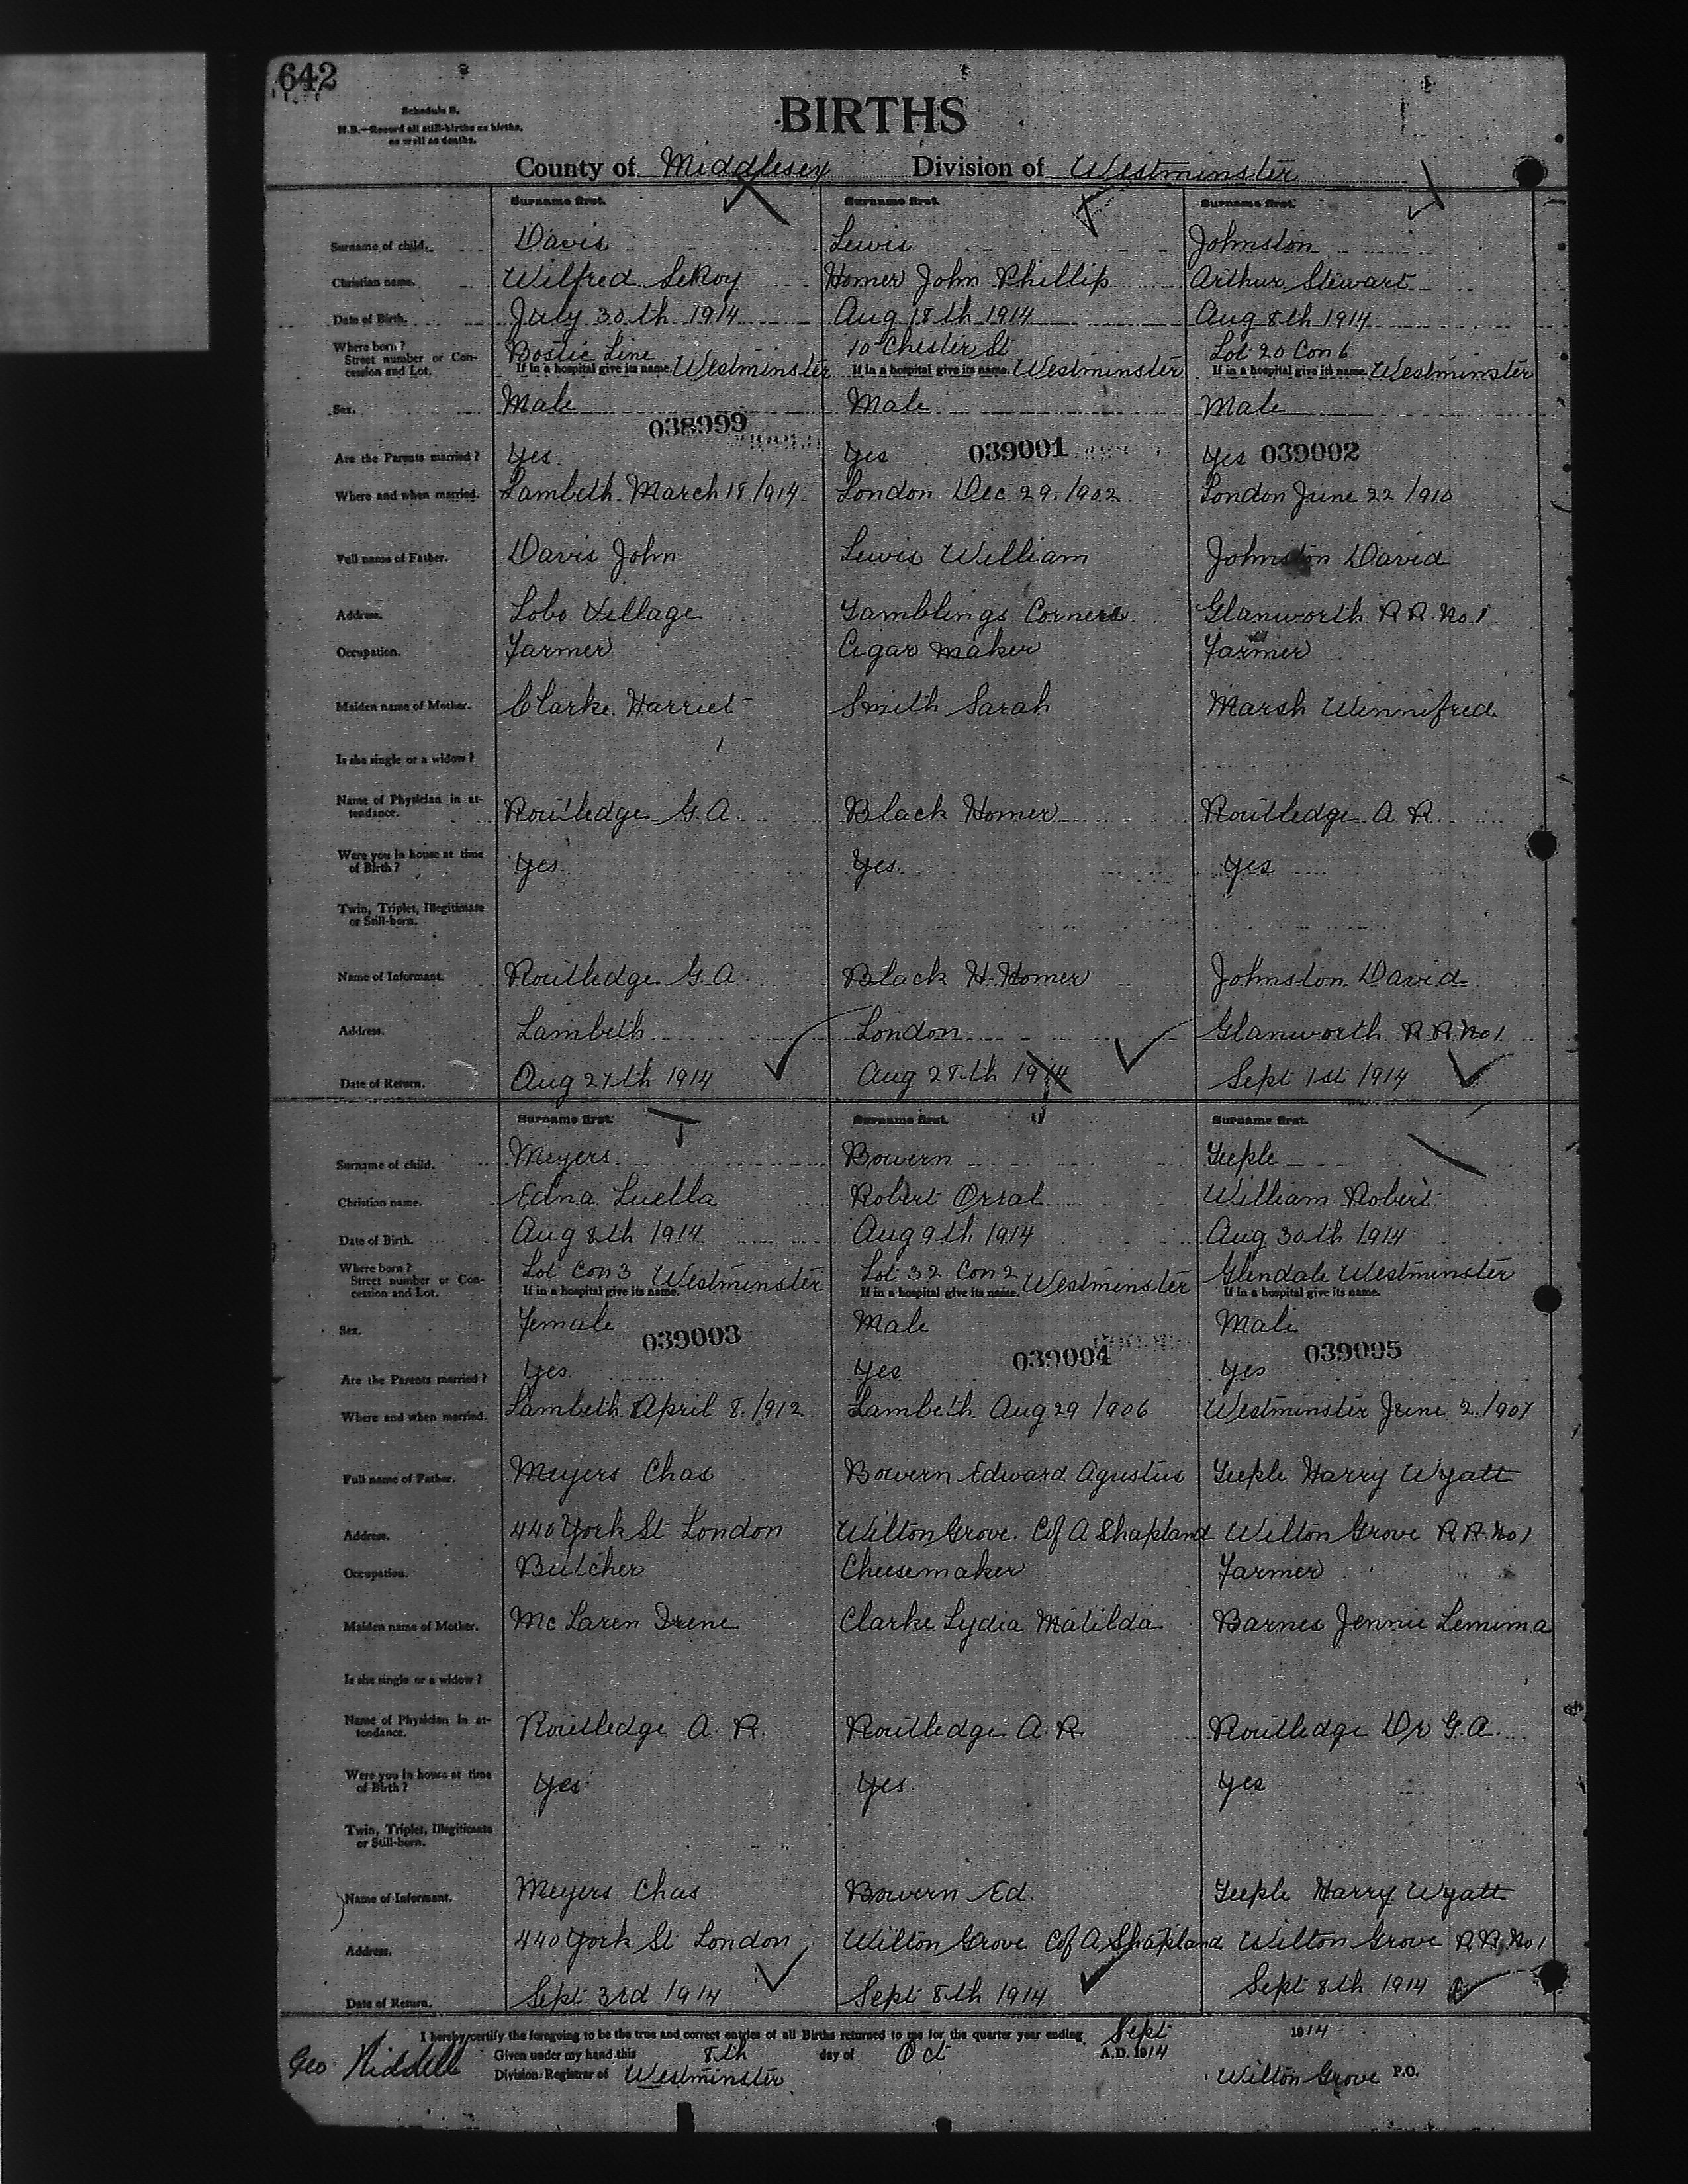 642
Schedule B.
N.B.—Record all still-births as births, as well as deaths.
BIRTHS
County of Middlesex Division of Westminster
Surname first. Surname first. Surname first.
Surname of child. Davis Lewis Johnston
Christian name. Wilfred LeRoy Homer John Phillip Arthur Stewart
Date of Birth. July 30th 1914 Aug 18th 1914 Aug 8th 1914
Where born? Bostic Line 10 Chester St Lot 20 Con 6
Street number or Concession and Lot. If in a hospital give its name. Westminster If in a hospital give its name. Westminster If in a hospital give its name. Westminster
Sex. Male Male Male
038999 039001 039002
Are the Parents married? Yes Yes Yes
Where and when married. Lambeth March 18/1914 London Dec 29/1902 London June 22/1910
Full name of Father. Davis John Lewis William Johnston David
Address. Lobo Village Tamblings Corners Glanworth R.R. No 1
Occupation. Farmer Cigar maker Farmer
Maiden name of Mother. Clarke Harriet Smith Sarah Marsh Winnifred
Is she single or a widow?
Name of Physician in attendance. Routledge G.A. Black Homer Routledge A R
Were you in house at time of Birth? Yes Yes Yes
Twin, Triplet, Illegitimate or Still-born.
Name of Informant. Routledge G.A. Black H. Homer Johnston David
Address. Lambeth London Glanworth R.R. No 1
Date of Return. Aug 27th 1914 Aug 28th 1914 Sept 1st 1914
Surname first. Surname first. Surname first.
Surname of child. Meyers Bowern Teeple
Christian name. Edna Luella Robert Orral William Robert
Date of Birth. Aug 8th 1914 Aug 9th 1914 Aug 30th 1914
Where born? Lot Con 3 Westminster Lot 32 Con 2 Westminster Glendale Westminster
Street number or Concession and Lot. If in a hospital give its name. If in a hospital give its name. If in a hospital give its name.
Sex. Female Male Male
039003 039004 039005
Are the Parents married? Yes Yes Yes
Where and when married. Lambeth April 8/1912 Lambeth Aug 29/1906 Westminster June 2/1907
Full name of Father. Meyers Chas Bowern Edward Agustus Teeple Harry Wyatt
Address. 440 York St London Wilton Grove C of A Shapland Wilton Grove R.R. No 1
Occupation. Butcher Cheesemaker Farmer
Maiden name of Mother. Mc Laren Irene Clarke Lydia Matilda Barnes Jennie Lemima
Is she single or a widow?
Name of Physician in attendance. Routledge A. R. Routledge A. R. Routledge Dr G.A.
Were you in house at time of Birth? Yes Yes Yes
Twin, Triplet, Illegitimate or Still-born.
Name of Informant. Meyers Chas Bowern Ed. Teeple Harry Wyatt
Address. 440 York St London Wilton Grove C of A Shapland Wilton Grove R.R. No 1
Date of Return. Sept 3rd 1914 Sept 8th 1914 Sept 8th 1914
I hereby certify the foregoing to be the true and correct entries of all Births returned to me for the quarter year ending Sept 1914
Given under my hand this 8th day of Oct A.D. 1914
Geo. Riddell Division Registrar of Westminster Wilton Grove P.O.